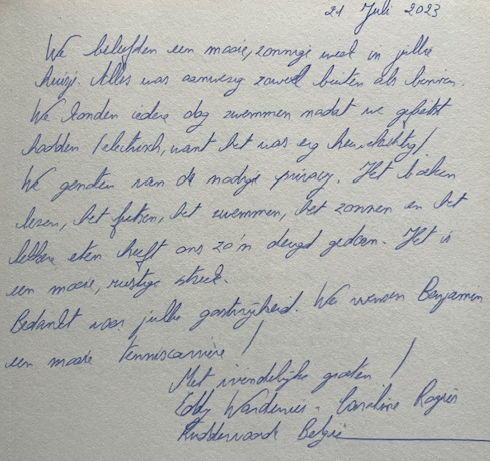 21 Juli 2023
We beleefden een mooie, zonnige week in jullie
huisje. Alles was aanwezig zowel buiten als binnen.
We konden iedere dag zwemmen nadat we gefietst
hadden (electrisch, want het was erg heuvelachtig)
We genoten van de nodige privacy. Het boeken
lezen, het fietsen, het zwemmen, het zonnen en het
lekkere eten heeft ons zo'n deugd gedaan. Het is
een mooie, rustige streek.
Bedankt voor jullie gastvrijheid. We wensen Benjamin
een mooie tenniscarrière!
Met vriendelijke groeten!
Eddy - Caroline Rogier
Ruddervoorde België